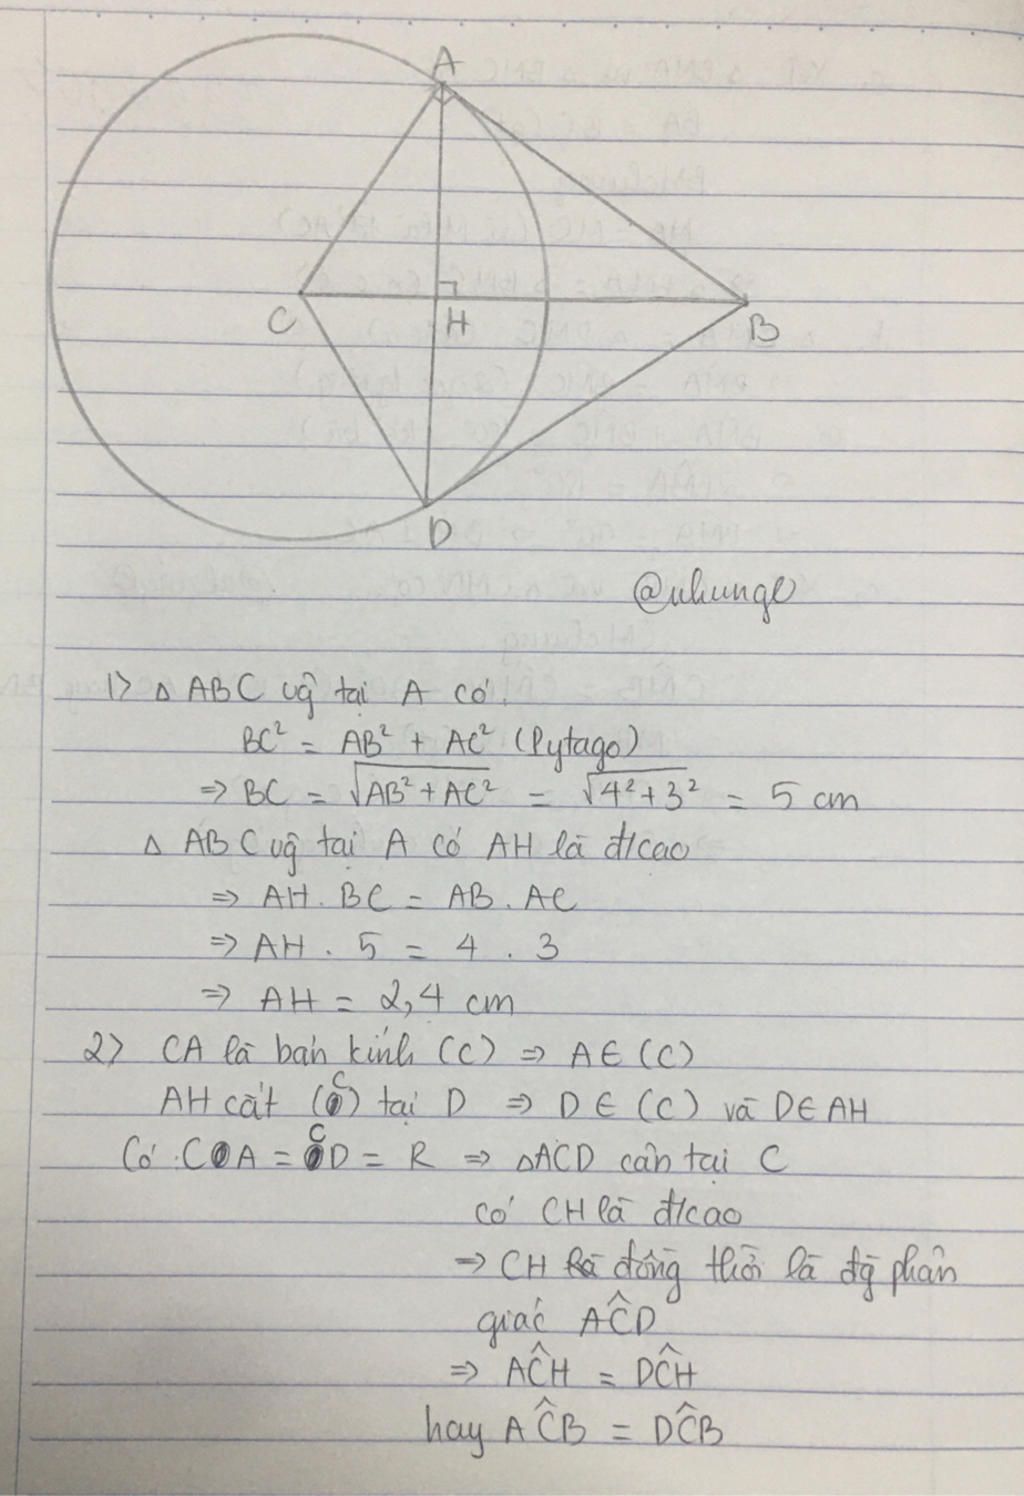 A
C
H
B
D
@nhungo
1> △ ABC vg̃ tại A có:
BC² = AB² + AC² (Pytago)
⇒ BC = √AB² + AC² = √4² + 3² = 5 cm
△ ABC vg̃ tại A có AH là đ/cao
⇒ AH . BC = AB . AC
⇒ AH . 5 = 4 . 3
⇒ AH = 2,4 cm
2> CA là bán kính (C) ⇒ A ∈ (C)
AH cắt (C) tại D ⇒ D ∈ (C) và D ∈ AH
Có CA = CD = R ⇒ △ACD cân tại C
có CH là đ/cao
⇒ CH đồng thời là đg̃ phân
giác AĈD
⇒ AĈH = DĈH
hay AĈB = DĈB